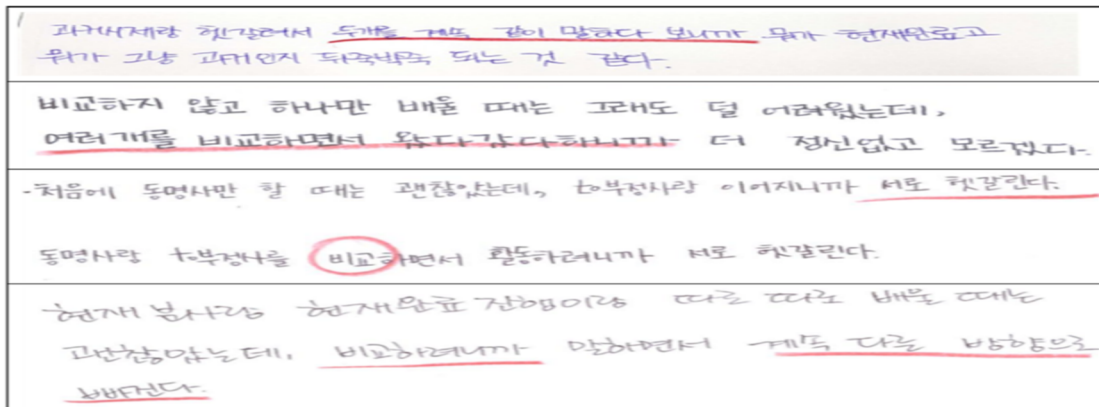 과거시제랑 헷갈려서 두개를 계속 같이 말하다 보니까 뭐가 현재완료고
뭐가 그냥 과거인지 뒤죽박죽 되는 것 같다.
비교하지 않고 하나만 배울 때는 그래도 덜 어려웠는데,
여러개를 비교하면서 왔다갔다하니까 더 정신없고 모르겠다.
-처음에 동명사만 할 때는 괜찮았는데, to부정사랑 이어지니까 서로 헷갈린다.
동명사랑 to부정사를 비교하면서 활동하려니까 서로 헷갈린다.
현재분사랑 현재완료 진행이랑 따로 따로 배울 때는
괜찮았는데, 비교하려니까 말하면서 계속 다른 방향으로
빠진다.